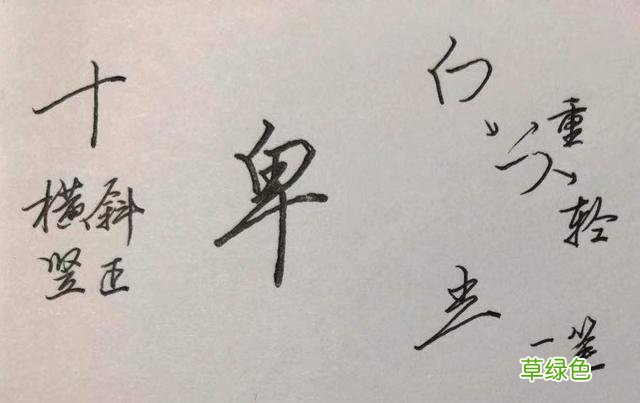 十
横斜
竖正
卑
重
轻
一笔
草绿色